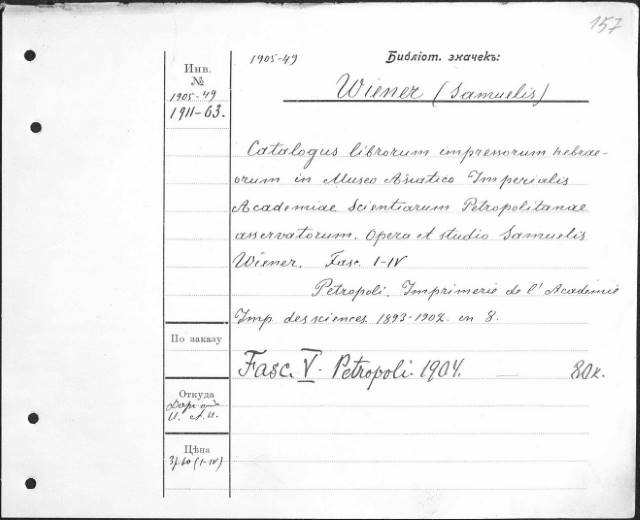 157
1905-49 Библіот. значекъ:
Инв. №
1905-49
1911-63.
Wiener (Samuelis)
Catalogus librorum impressorum hebrae-
orum in Museo Asiatico Imperialis
Academiae Scientiarum Petropolitanae
asservatorum. Opera et studio Samuelis
Wiener. Fasc. I-IV
Petropoli. Imprimerie de l'Académie
Imp. des sciences 1893-1902. en 8.
По заказу
Fasc. V. Petropoli. 1904. — 80к.
Откуда
Цѣна
(I-IV)